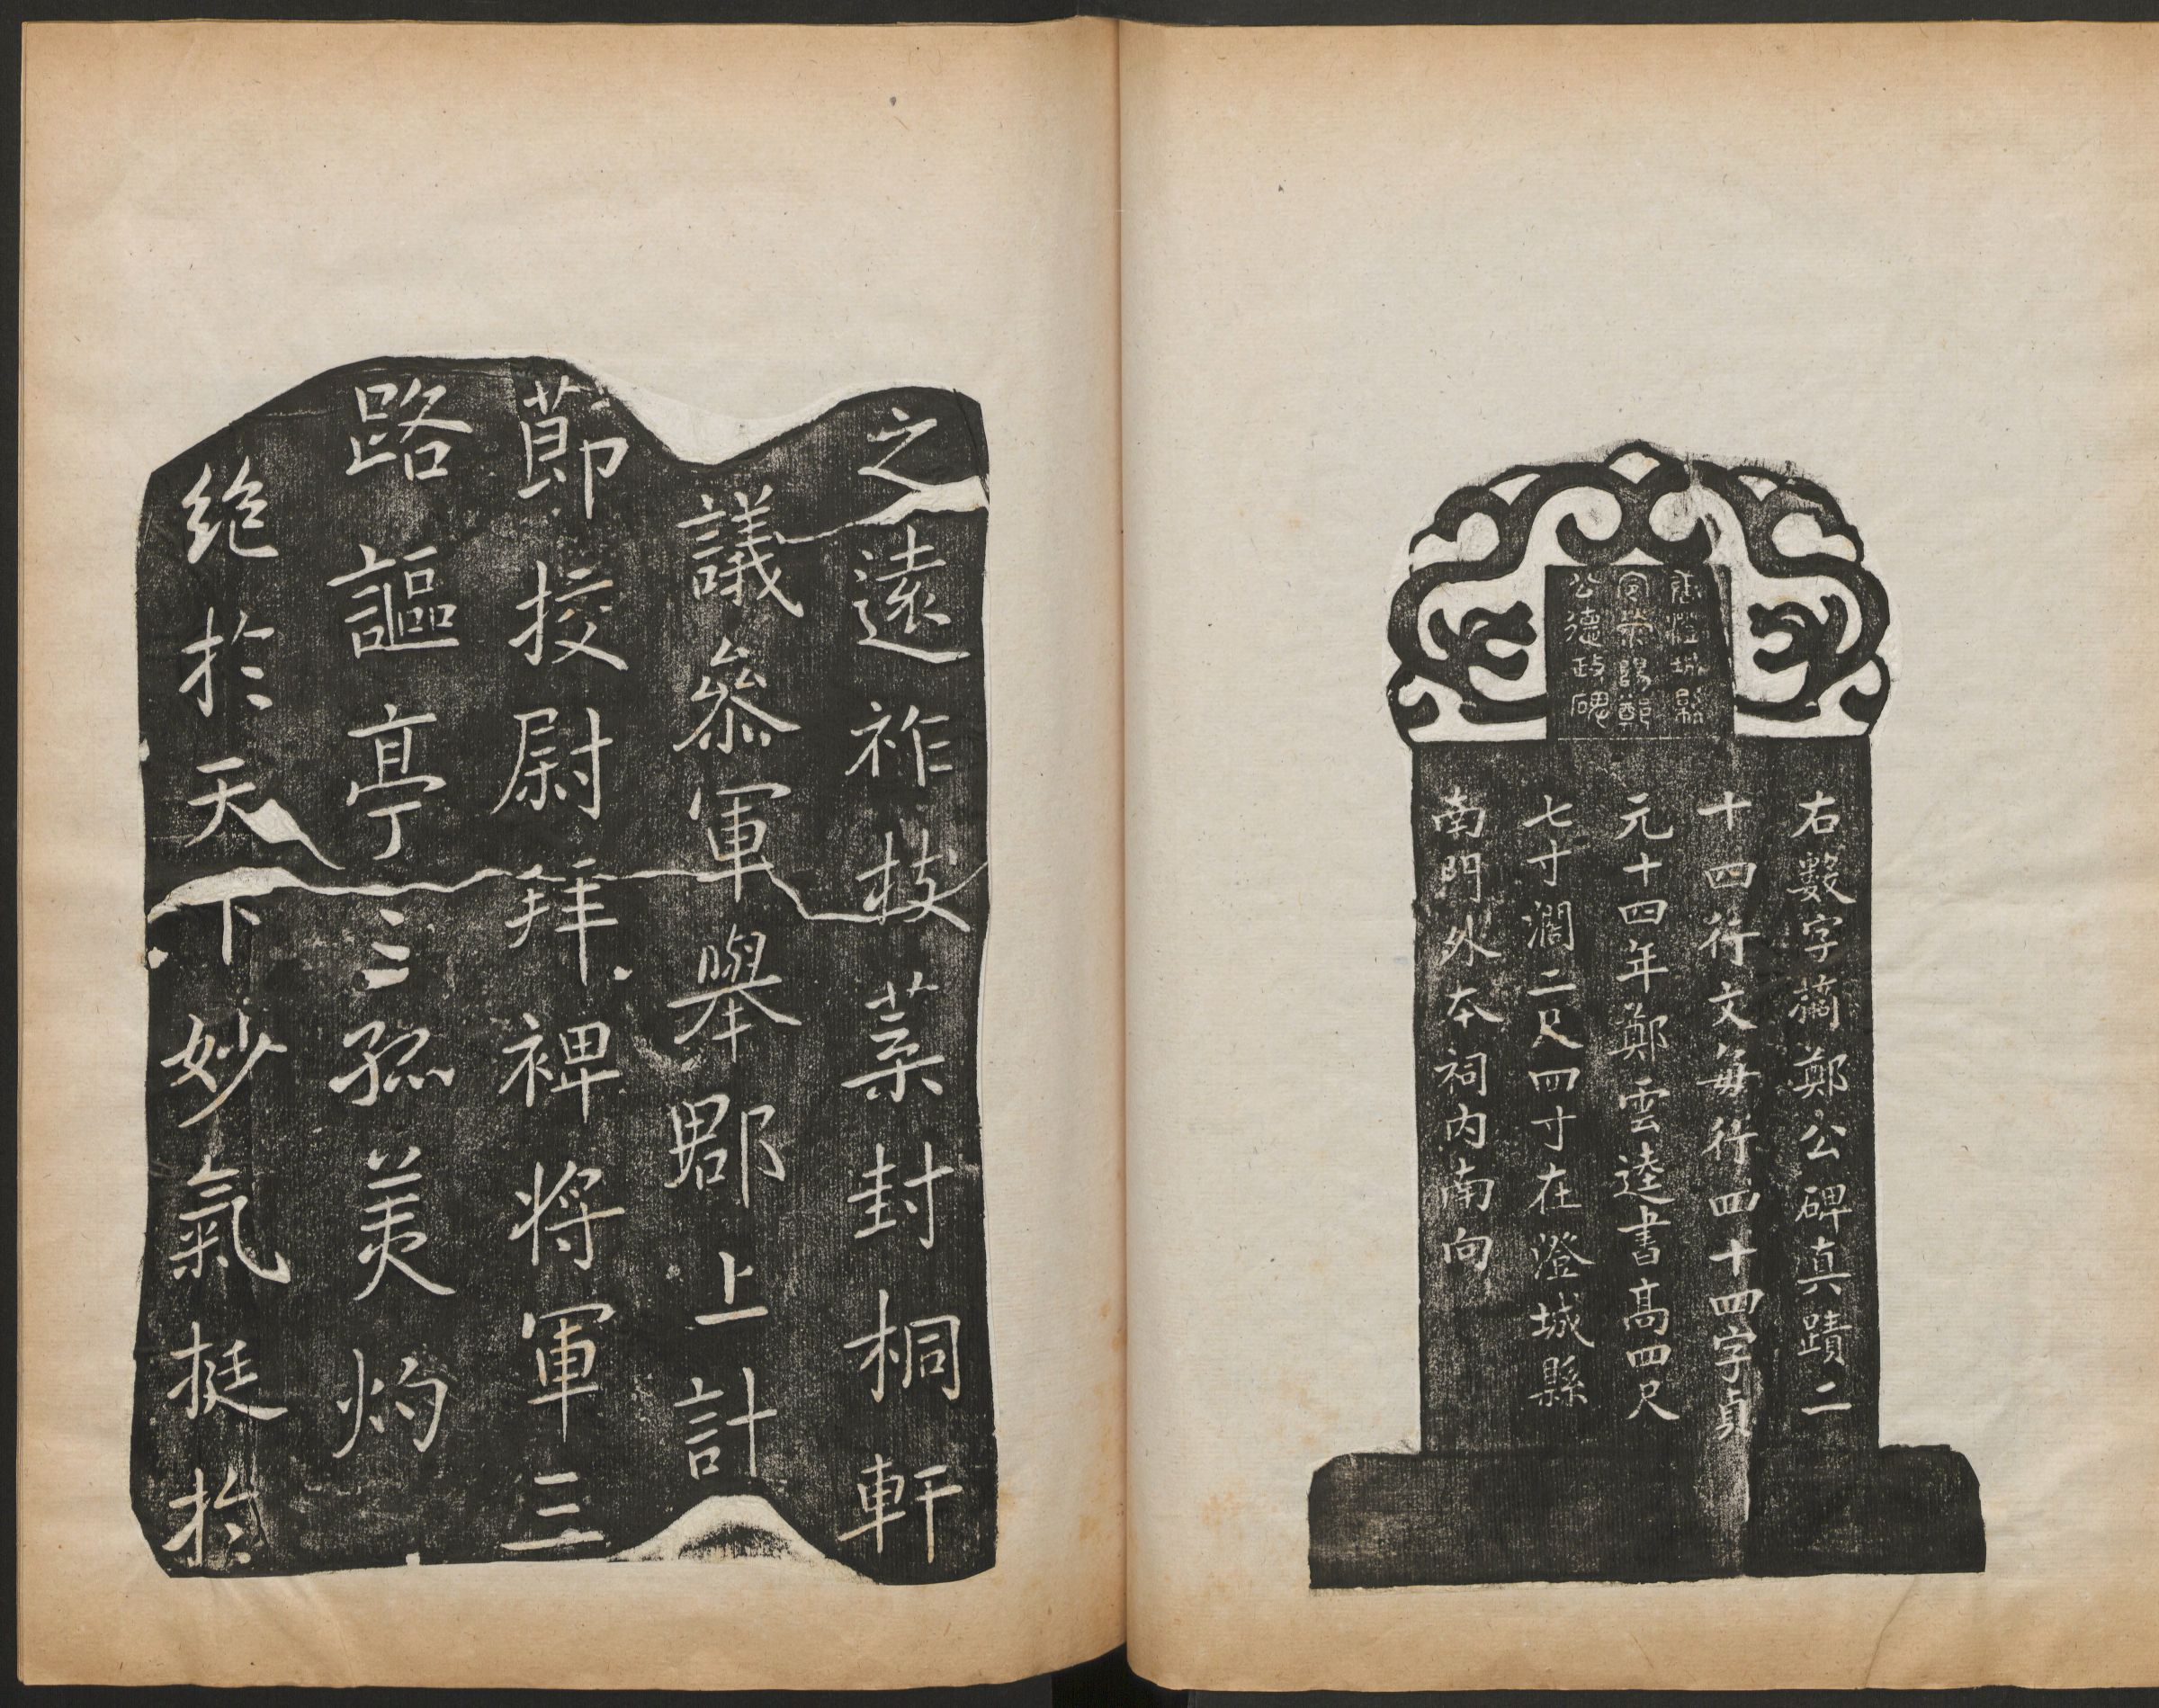 唐澄城縣
令滎陽鄭
公德政碑
右數字摘鄭公碑真蹟二
十四行文每行四十四字貞
元十四年鄭雲逵書高四尺
七寸濶二尺四寸在澄城縣
南門外本祠内南向
之遠祚技葉封桐軒
議叅軍舉郡上計
節挍尉拜裨将軍三
路謳亭三孤美灼
絶於天下妙氣挺於